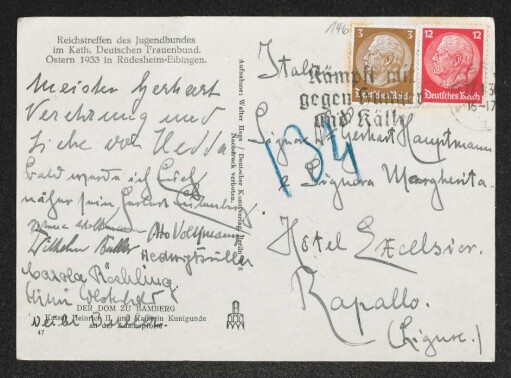 Reichstreffen des Jugendbundes
im Kath. Deutschen Frauenbund.
Ostern 1933 in Rüdesheim-Eibingen.
Meister Gerhart
Verehrung und
Liebe von Hedda
bald werde ich Euch
näher sein
Otto Volkmann
Wilhelm Buller
Hedwig Müller
Carola Röchling
DER DOM ZU BAMBERG
Kaiser Heinrich II. und Kaiserin Kunigunde
an der Adamspforte
47
Aufnahme: Walter Hege / Deutscher Kunstverlag Berlin W 8
Nachdruck verboten.
3
3
Deutsches Reich
12
12
Deutsches Reich
Kämpft mit
gegen Hunger
und Kälte
16-17
Italien
134
Signore Gerhart Hauptmann
e Signora Margherita
Hotel Excelsior.
Rapallo.
(Ligure.)